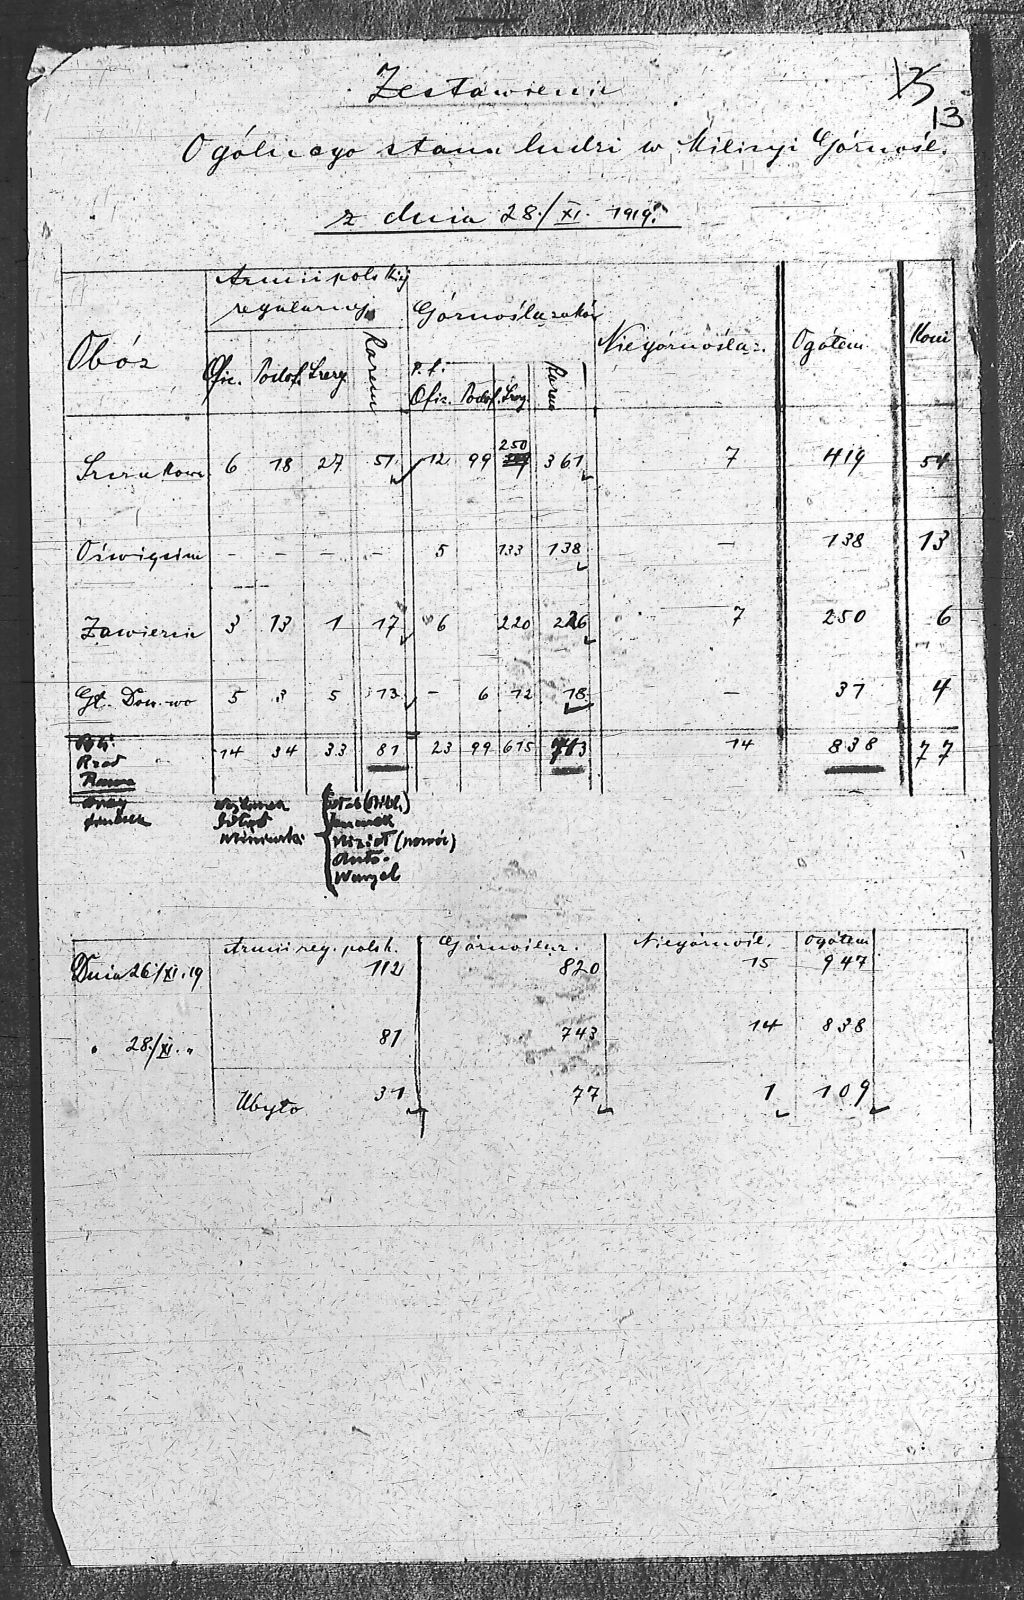 13
Zestawienie
Ogólnego stanu ludzi w Milicyi Górnośl.
z dnia 28./XI. 1919.
Obóz Armii polskiej regularnej Górnoślązaków Niegórnośląz. Ogółem Koni
Ofic. Podof. Szereg. Razem p.f. Ofic. Podof. Szereg. Razem
Szczakowa 6 18 27 51 12 99 250 361 7 419 54
Oświęcim - - - - 5 133 138 - 138 13
Zawiercie 3 13 1 17 6 220 226 7 250 6
Gł. Dow-wo 5 3 5 13 - 6 12 18 - 37 4
14 34 33 81 23 99 615 743 14 838 77
Armii reg. polsk. Górnośląz. Niegórnośl. Ogółem
Dnia 26/XI.19 112 820 15 947
" 28./XI. " 81 743 14 838
Ubyło 31 77 1 109